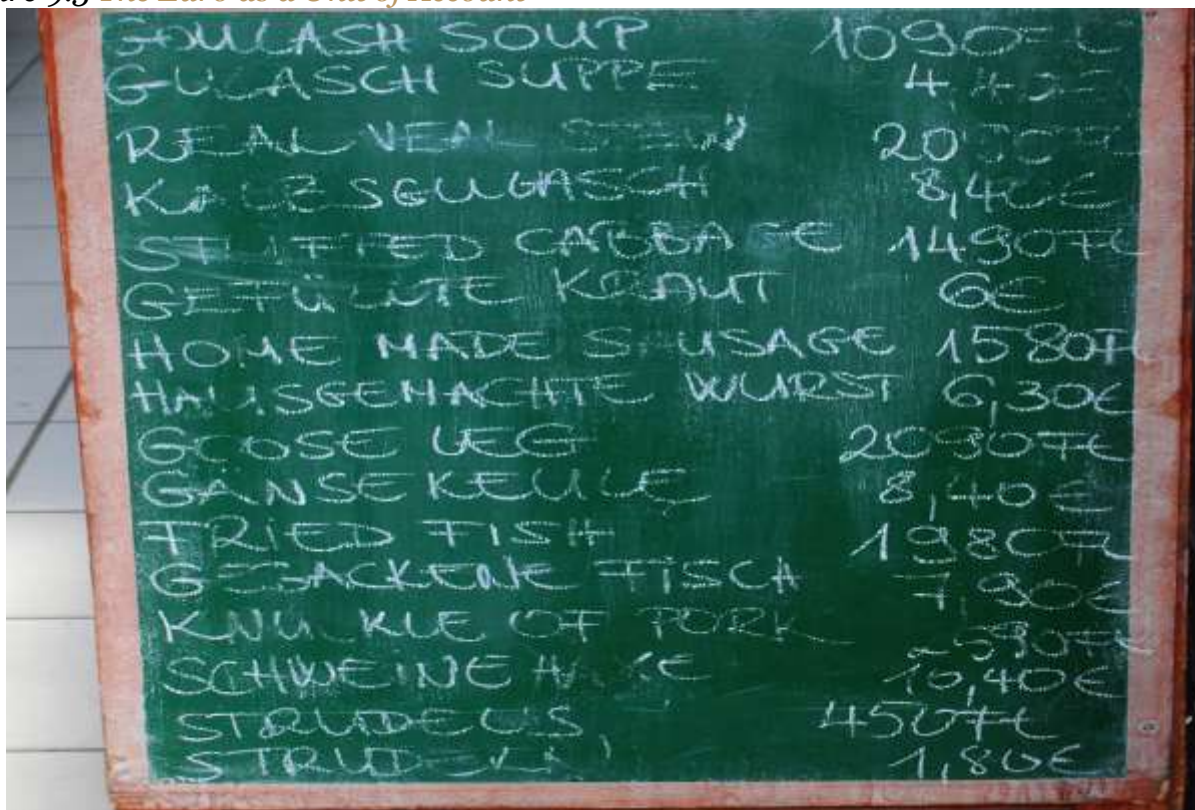 The Euro as a Unit of Account
GOULASH SOUP 1090 Ft
GULASCH SUPPE
REAL VEAL STEW 2090 Ft
KALBSGULASCH 8,40€
STUFFED CABBAGE 1490 Ft
GEFÜLLTE KRAUT 6€
HOME MADE SAUSAGE 1580 Ft
HAUSGEMACHTE WURST 6,30€
GOOSE LEG 2090 Ft
GÄNSEKEULE 8,40€
FRIED FISH 1980 Ft
GEBACKENE FISCH 7,90€
KNUCKLE OF PORK
SCHWEINEHAXE 10,40€
STRUDELS 450 Ft
1,80€